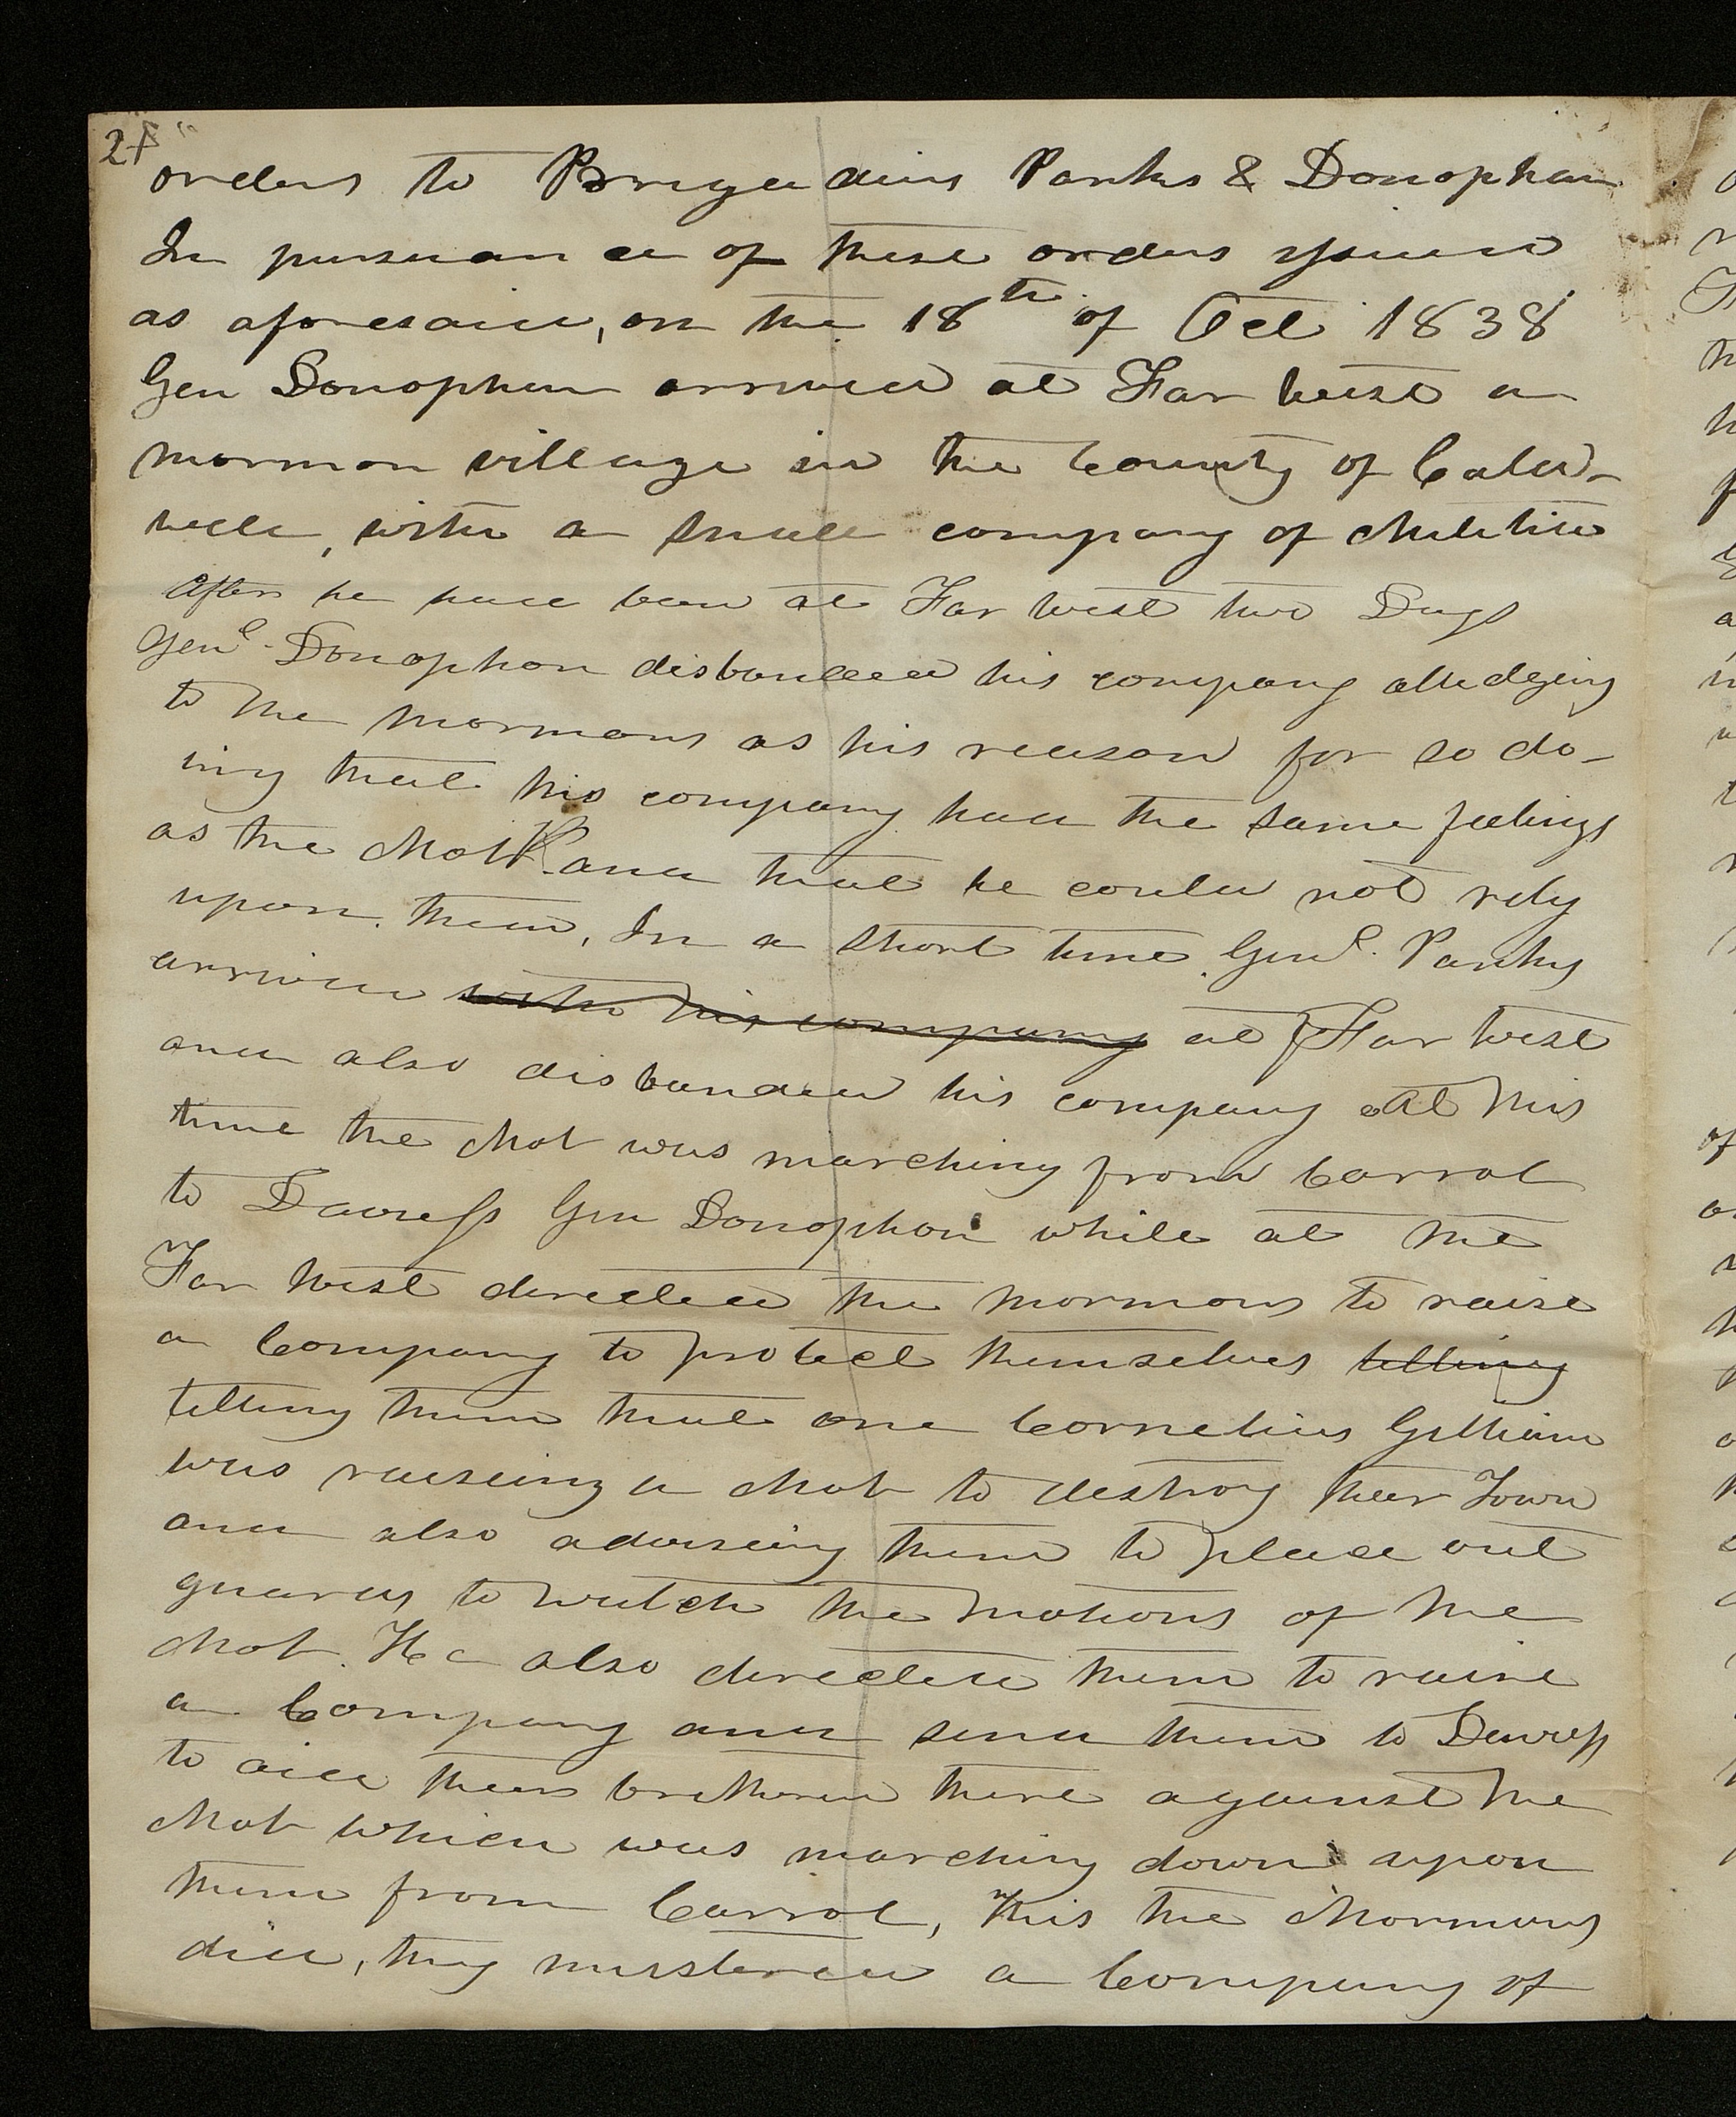 27"
orders to Brigadiers Parks & Donophan
In pursuance of these orders issued
as aforesaid, on the 18th of Oct 1838
Gen Donophan arrived at Far West a
mormon village in the County of Cald-
well, with a small company of Militia
After he had been at Far West two Days
Genl. Donophon disbanded his company alledging
to the mormons as his reason for so do-
ing that his company had the same feelings
as the Mob and that he could not rely
upon them, In a short time Genl. Parks
arrived with his company at Far West
and also disbanded his company At this
time the Mob was marching from Carrol
to Daviess Gen Donophon while at the
Far West directed the mormons to raise
a Company to protect themselves telling
telling them that one Cornelius Gilliam
was raiseing a Mob to destroy their Town
and also adviseing them to place out
guards to watch the motions of the
Mob. He also directed them to raise
a Company and send them to Daviess
to aid their bretheren there against the
Mob which was marching down upon
them from Carrol, This the Mormons
did, they mustered a Company of